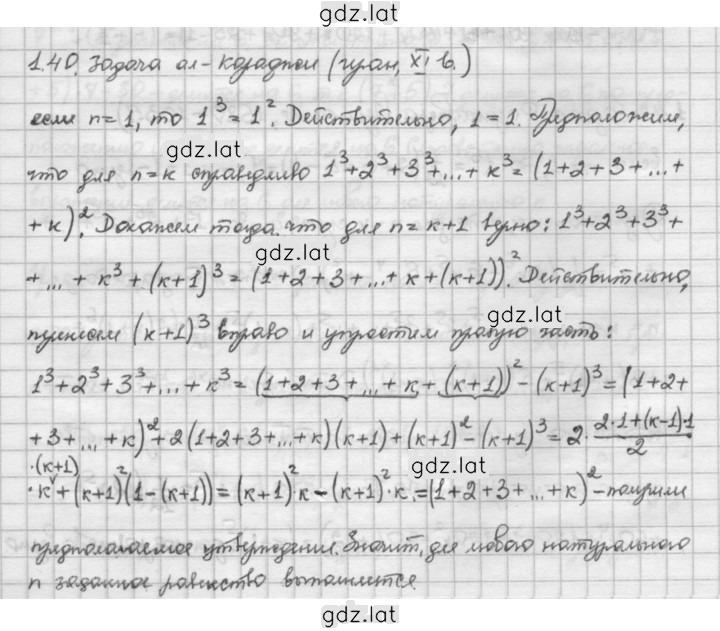 gdz.lat
1.40. Задача ал-Караджи (Иран, XI в.)
если n=1, то 1³=1². Действительно, 1=1. Предположим,
gdz.lat
что для n=k справедливо 1³+2³+3³+...+k³=(1+2+3+...+
+k)². Докажем тогда, что для n=k+1 верно: 1³+2³+3³+
gdz.lat
+...+k³+(k+1)³=(1+2+3+...+k+(k+1))². Действительно,
gdz.lat
перенесем (k+1)³ вправо и упростим правую часть:
1³+2³+3³+...+k³=(1+2+3+...+k+(k+1))²-(k+1)³=(1+2+
+3+...+k)²+2(1+2+3+...+k)(k+1)+(k+1)²-(k+1)³=2·(2·1+(k-1)·1)/2
·(k+1)
gdz.lat
·k+(k+1)²(1-(k+1))=(k+1)²·k-(k+1)²·k=(1+2+3+...+k)²-получили
предполагаемое утверждение. Значит, для любого натурального
n заданное равенство выполняется.
gdz.lat